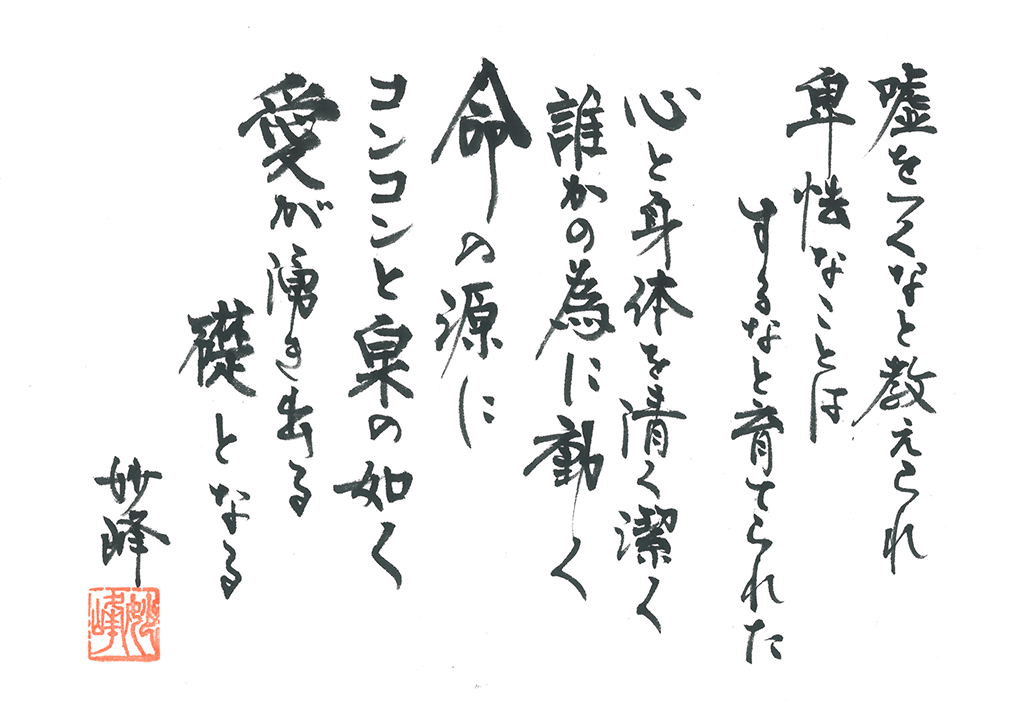 嘘をつくなと教えられ
卑怯なことは
するなと育てられた
心と身体を清く潔く
誰かの為に動く
命の源に
コンコンと泉の如く
愛が湧き出る
礎となる
妙峰
妙峰